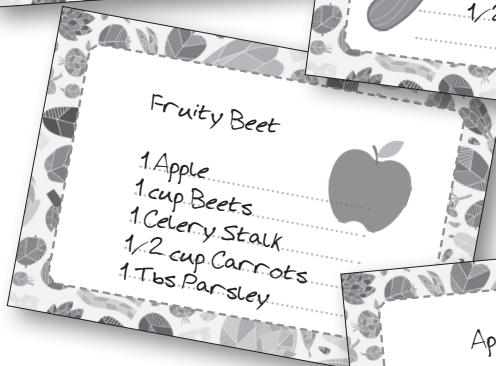 1/2
Fruity Beet
1 Apple
1 cup Beets
1 Celery Stalk
1/2 cup Carrots
1 Tbs Parsley
Ap